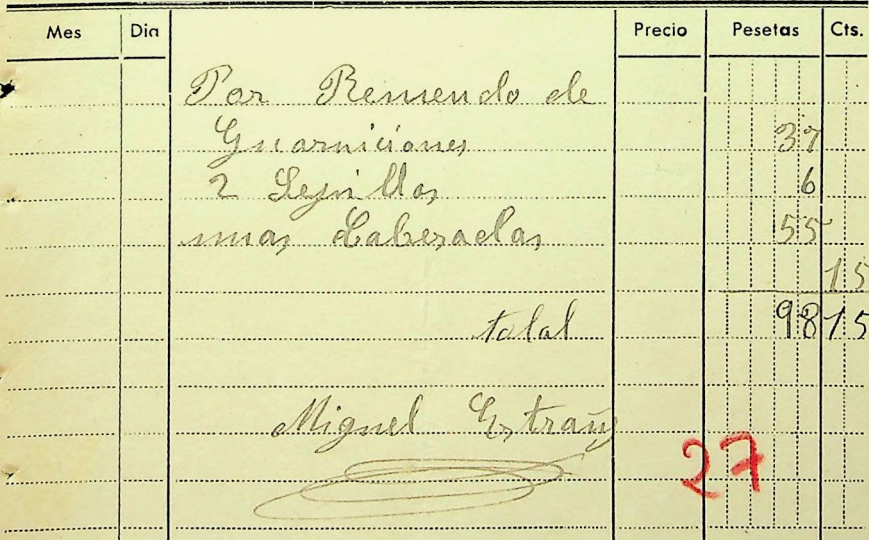 Mes Dia Precio Pesetas Cts.
Por Remendo de
Guarniciones 37
2 Sepillos 6
unas Cabesadas 55
15
total 98 15
Miguel Estrany
27